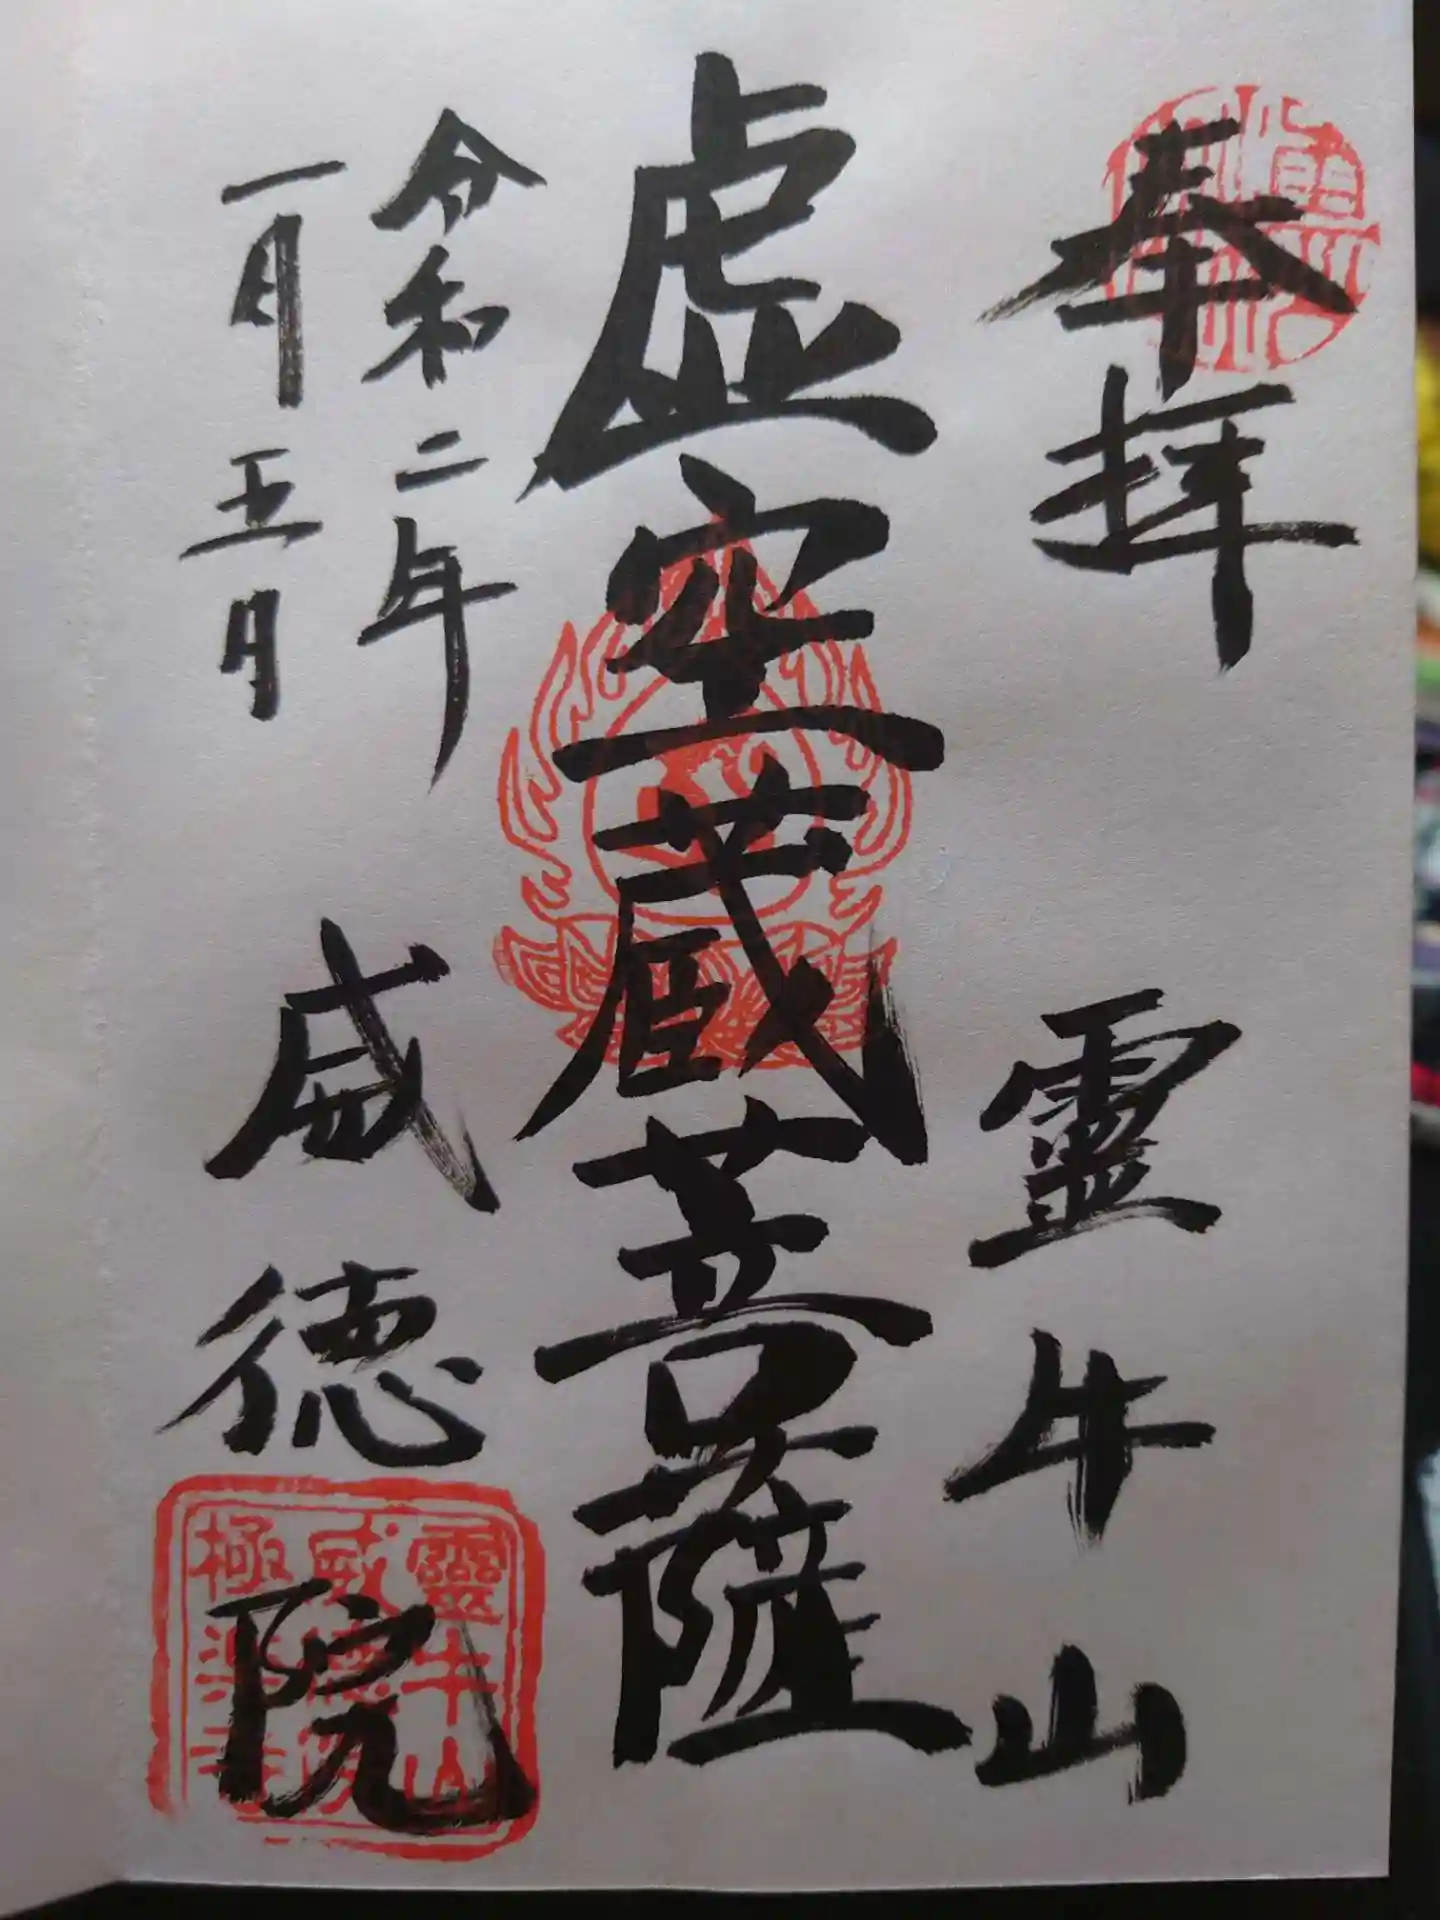 奉拝
霊牛山
虚空蔵菩薩
令和二年
一月五日
威徳院
靈牛山
威徳院
極楽寺